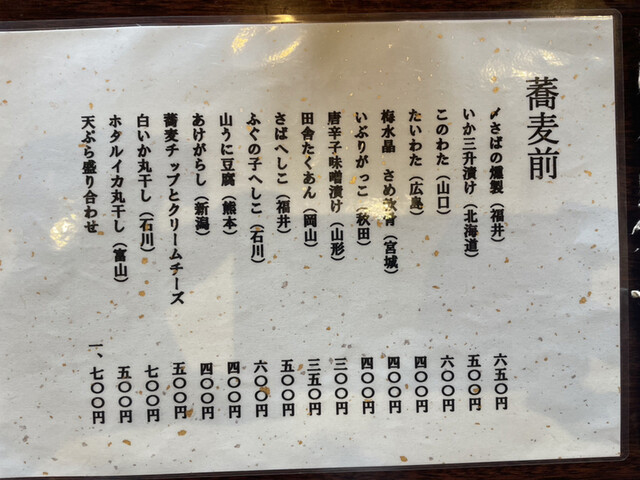 蕎麦前
〆さばの燻製（福井） 六五〇円
いか三升漬け（北海道） 五〇〇円
このわた（山口） 六〇〇円
たいわた（広島） 四〇〇円
梅水晶 さめ軟骨（宮城） 四〇〇円
いぶりがっこ（秋田） 四〇〇円
唐辛子味噌漬け（山形） 三〇〇円
田舎たくあん（岡山） 三五〇円
さばへしこ（福井） 五〇〇円
ふぐの子へしこ（石川） 六〇〇円
山うに豆腐（熊本） 四〇〇円
あけがらし（新潟） 四〇〇円
蕎麦チップとクリームチーズ 五〇〇円
白いか丸干し（石川） 七〇〇円
ホタルイカ丸干し（富山） 五〇〇円
天ぷら盛り合わせ 一、七〇〇円